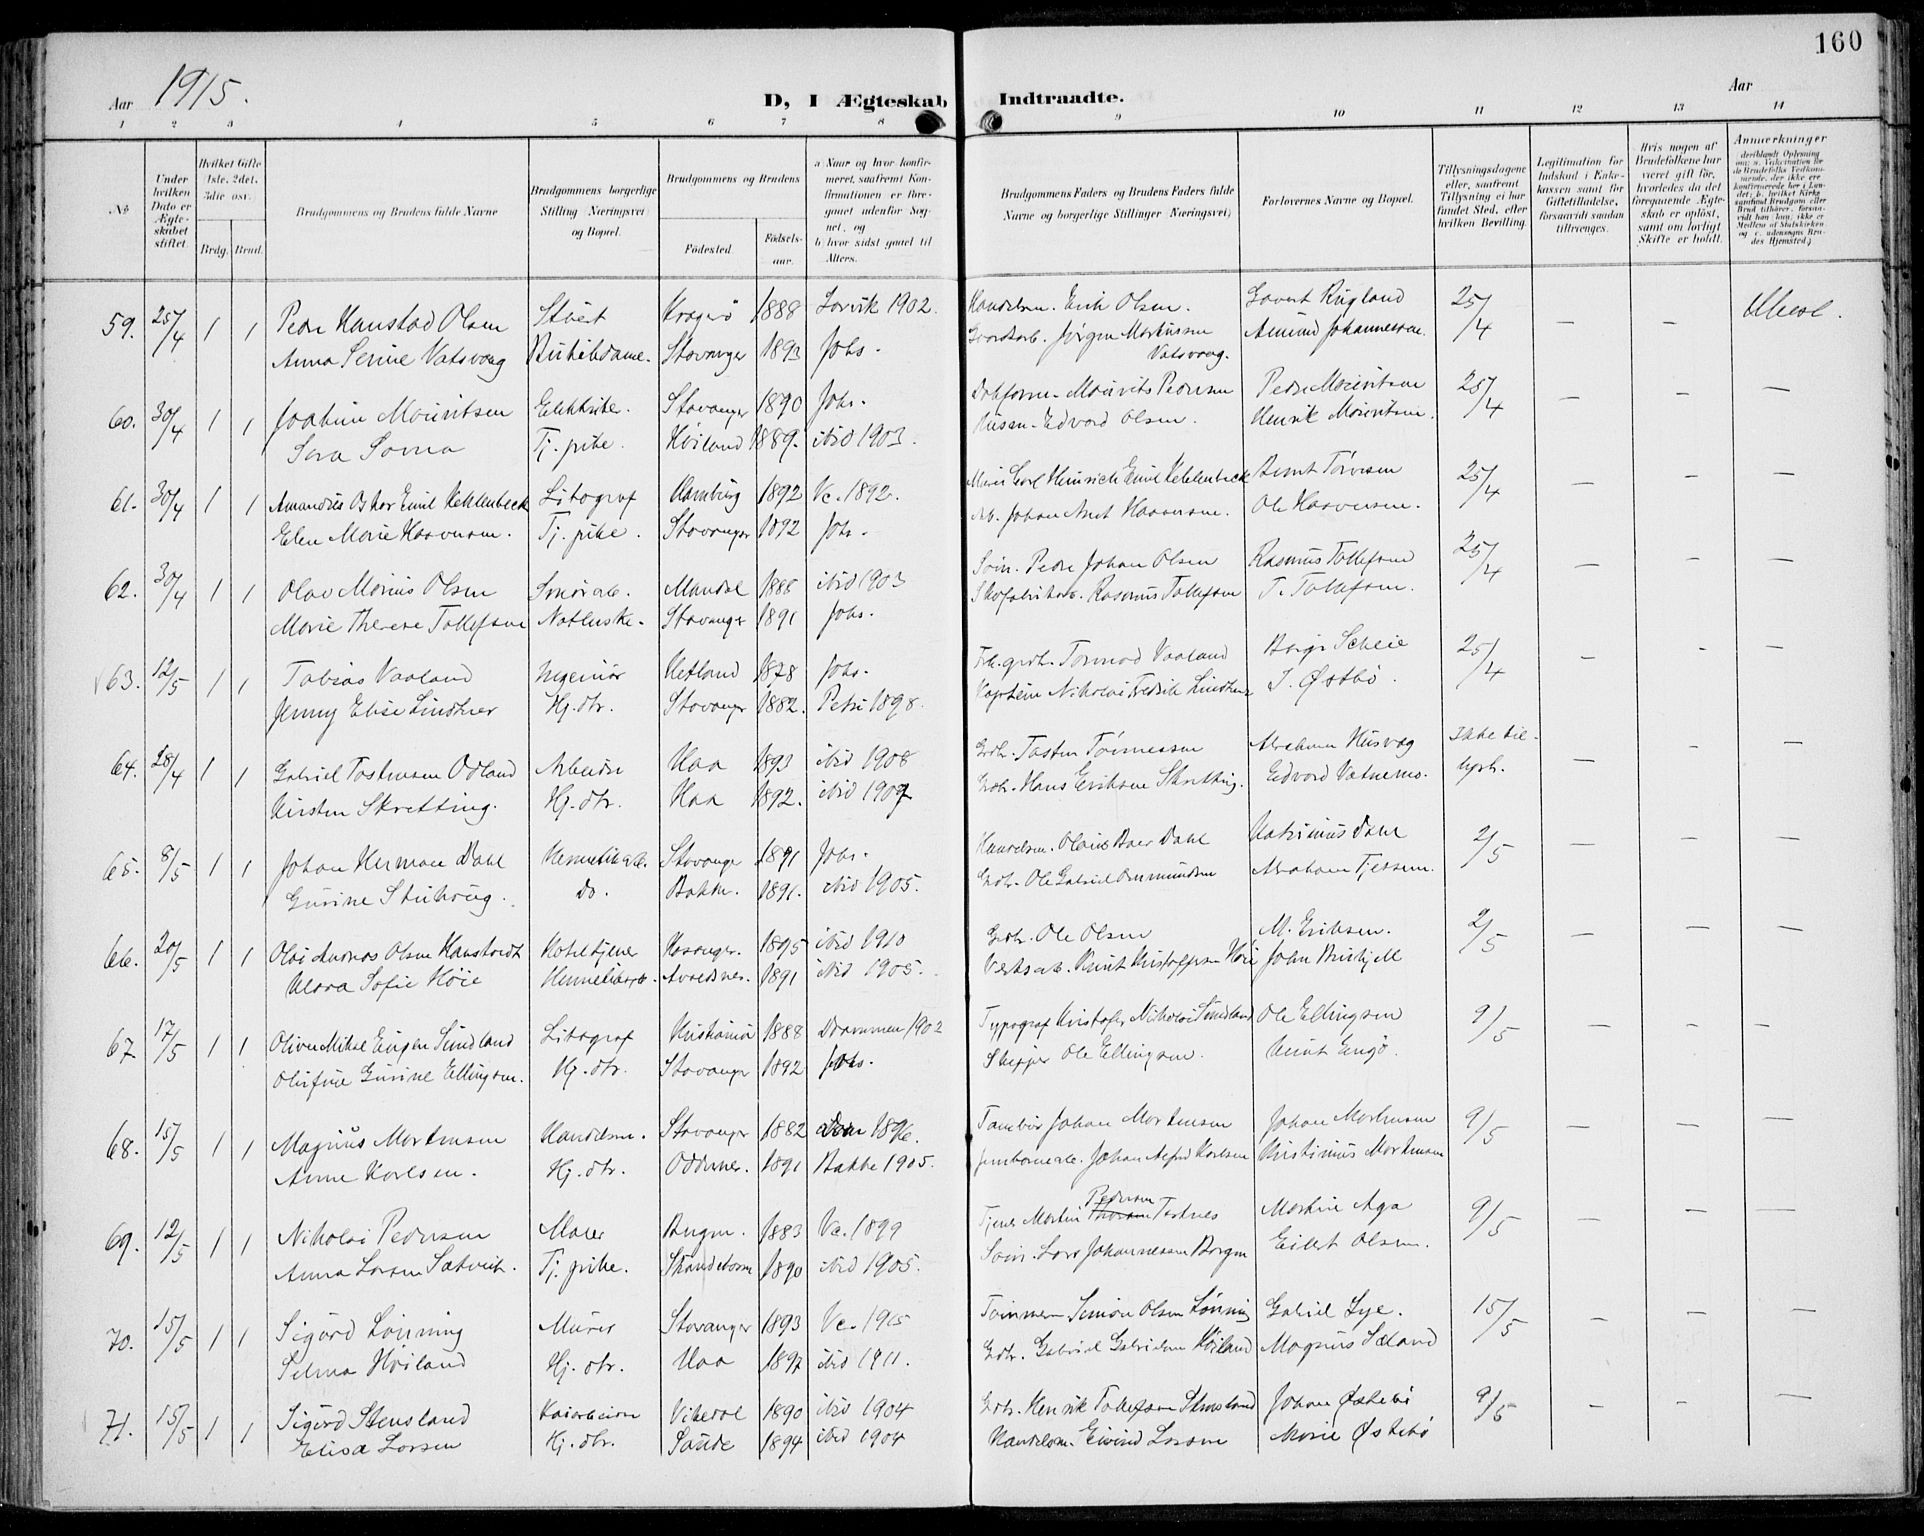 160
Aar 1915.
D, I Ægteskab Indtraadte.
Aar
1 2 3 4 5 6 7 8 9 10 11 12 13 14
No
Under hvilken Dato er Ægteskabet stiftet.
Hvilket Gifte 1ste, 2det, 3die osv.
Brdg. Brud.
Brudgommens og Brudens fulde Navne
Brudgommens borgerlige Stilling (Næringsvei) og Bopæl.
Brudgommens og Brudens
Fødested. Fødselsaar.
a. Naar og hvor konfirmeret, saafremt Konfirmationen er foregaaet udenfor Sognet, og
b. hvor sidst gaaet til Alters.
Brudgommens Faders og Brudens Faders fulde Navne og borgerlige Stillinger (Næringsvei)
Forlovernes Navne og Bopæl.
Tillysningsdagene eller, saafremt Tillysning ei har fundet Sted, efter hvilken Bevilling.
Legitimation for Indskud i Enkekassen samt for Giftetilladelse, forsaavidt saadan tiltrænges.
Hvis nogen af Brudefolkene har været gift før, hvorledes da det foregaaende Ægteskab er opløst, samt om lovligt Skifte er holdt.
Anmærkninger
59. 25/4 1 1 Peder Hanstad Olsen Stuert Kragerø 1888 Larvik 1902. Handelsm. Erik Olsen. Govert Rugland 25/4 — —
Anna Serine Vatsvaag Butikdame. Stavanger 1893 Johs. Gaardarb. Jørgen Martinsen Vatsvaag. Amund Johannessen.
60. 30/4 1 1 Joakim Mauritsen Elektriker. Stavanger 1890 Johs. Maurits Pedersen Peder Mauritsen 25/4 — — —
Sara Soma Tj. pike. Høiland 1889. ibid 1903. Husm. Edvard Olsen. Henrik Mauritsen.
61. 30/4 1 1 Amandus Oskar Emil Kehlenbeck Litograf Hamburg 1892 Ve. 1892. Carl Heinrich Emil Kehlenbeck Arnt Tørresen 25/4 — — —
Elen Marie Haaversen. Tj. pike. Stavanger 1892 Johs. Arb. Johan Arnt Haaversen. Ole Haaversen.
62. 30/4 1 1 Olav Marius Olsen Smørarb. Mandal 1888 ibid 1903 Søm. Peder Johan Olsen Rasmus Tollefsen 25/4 — — —
Marie Therese Tollefsen Notbuske. Stavanger 1891 Johs. Skofabrikarb. Rasmus Tollefsen T. Tollefsen.
63. 12/5 1 1 Tobias Vaaland Ingeniør Hetland 1878 Johs. Tormod Vaaland Børge Scheie 25/4 — — —
Jenny Elise Lindtner Hj. dtr. Stavanger 1882. Petri 1898. Kaptein Nikolai Fredrik Lindtner J. Østbø.
64. 28/4 1 1 Gabriel Tostensen Odland Arbeider Haa 1893 ibid 1908 Grdbr. Tosten Tønnessen Abraham Husvæg Ikke tillyst. — — —
Kirsten Skretting. Hj. dtr. Haa 1892. ibid 1907 Grdbr. Hans Eriksen Skretting. Edvard Vatnemo.
65. 8/5 1 1 Johan Herman Dahl Hermetikarb. Stavanger 1891 Johs. Handelsm. Olaus Baar Dahl Katrinius Dahl 2/5 — — —
Gurine Stuhaug. Do. Bakke. 1891. ibid 1905. Grdbr. Ole Gabriel Osmundsen Abraham Tjessem.
66. 20/5 1 1 Olai Andreas Olsen Hanstveit Hoteltjener Hosanger. 1895 ibid 1910 Grdbr. Ole Olsen M. Eriksen. 2/5 — — —
Klara Sofie Høie Hermetikarb. Avaldsnes. 1891 ibid 1905. Verksarb. Knut Kristoffersen Høie John Birkjell
67. 17/5 1 1 Oliver Mikal Eugen Sundland Litograf Kristiania 1888 Drammen 1902 Typograf Kristofer Nikolai Sundland Ole Ellingsen 9/5 — — —
Olufine Gurine Ellingsen. Hj. dtr. Stavanger 1892 Johs. Skipper Ole Ellingsen. Knut Engø.
68. 15/5 1 1 Magnus Mortensen Handelsm. Stavanger 1882 Dom 1896. Tambur Johan Mortensen Johan Mortensen 9/5 —
Anne Karlsen. Hj. dtr. Oddernes. 1891 Bakke 1905. Jernbanearb. Johan Alfred Karlsen Kristinius Mortensen
69. 12/5 1 1 Nikolai Pedersen Maler Bergen. 1883 Ve. 1899 Tjener Martin Pedersen Tertnes Martin Aga 9/5 — — —
Anna Larsen Sætveit. Tj. pike. Strandebarm 1890 ibid 1905. Søm. Lars Johannessen Bergen Eilert Olsen.
70. 15/5 1 1 Sigurd Lønning Murer Stavanger 1893 Ve. 1915 Tømmerm Simon Olsen Lønning Gabriel Lye. 15/5 — — —
Selma Høiland Hj. dtr. Haa 1897 ibid 1911. Grdbr. Gabriel Gabrielsen Høiland Magnus Sæland
71. 15/5 1 1 Sigurd Stensland Kaiarbeider Vikedal 1890 ibid 1904 Grdbr. Henrik Tollefsen Stensland Johan Østebø 9/5 — — —
Elisa Larsen Hj. dtr. Saude 1894 ibid 1904 Handelsm. Eivind Larsen Marie Østebø